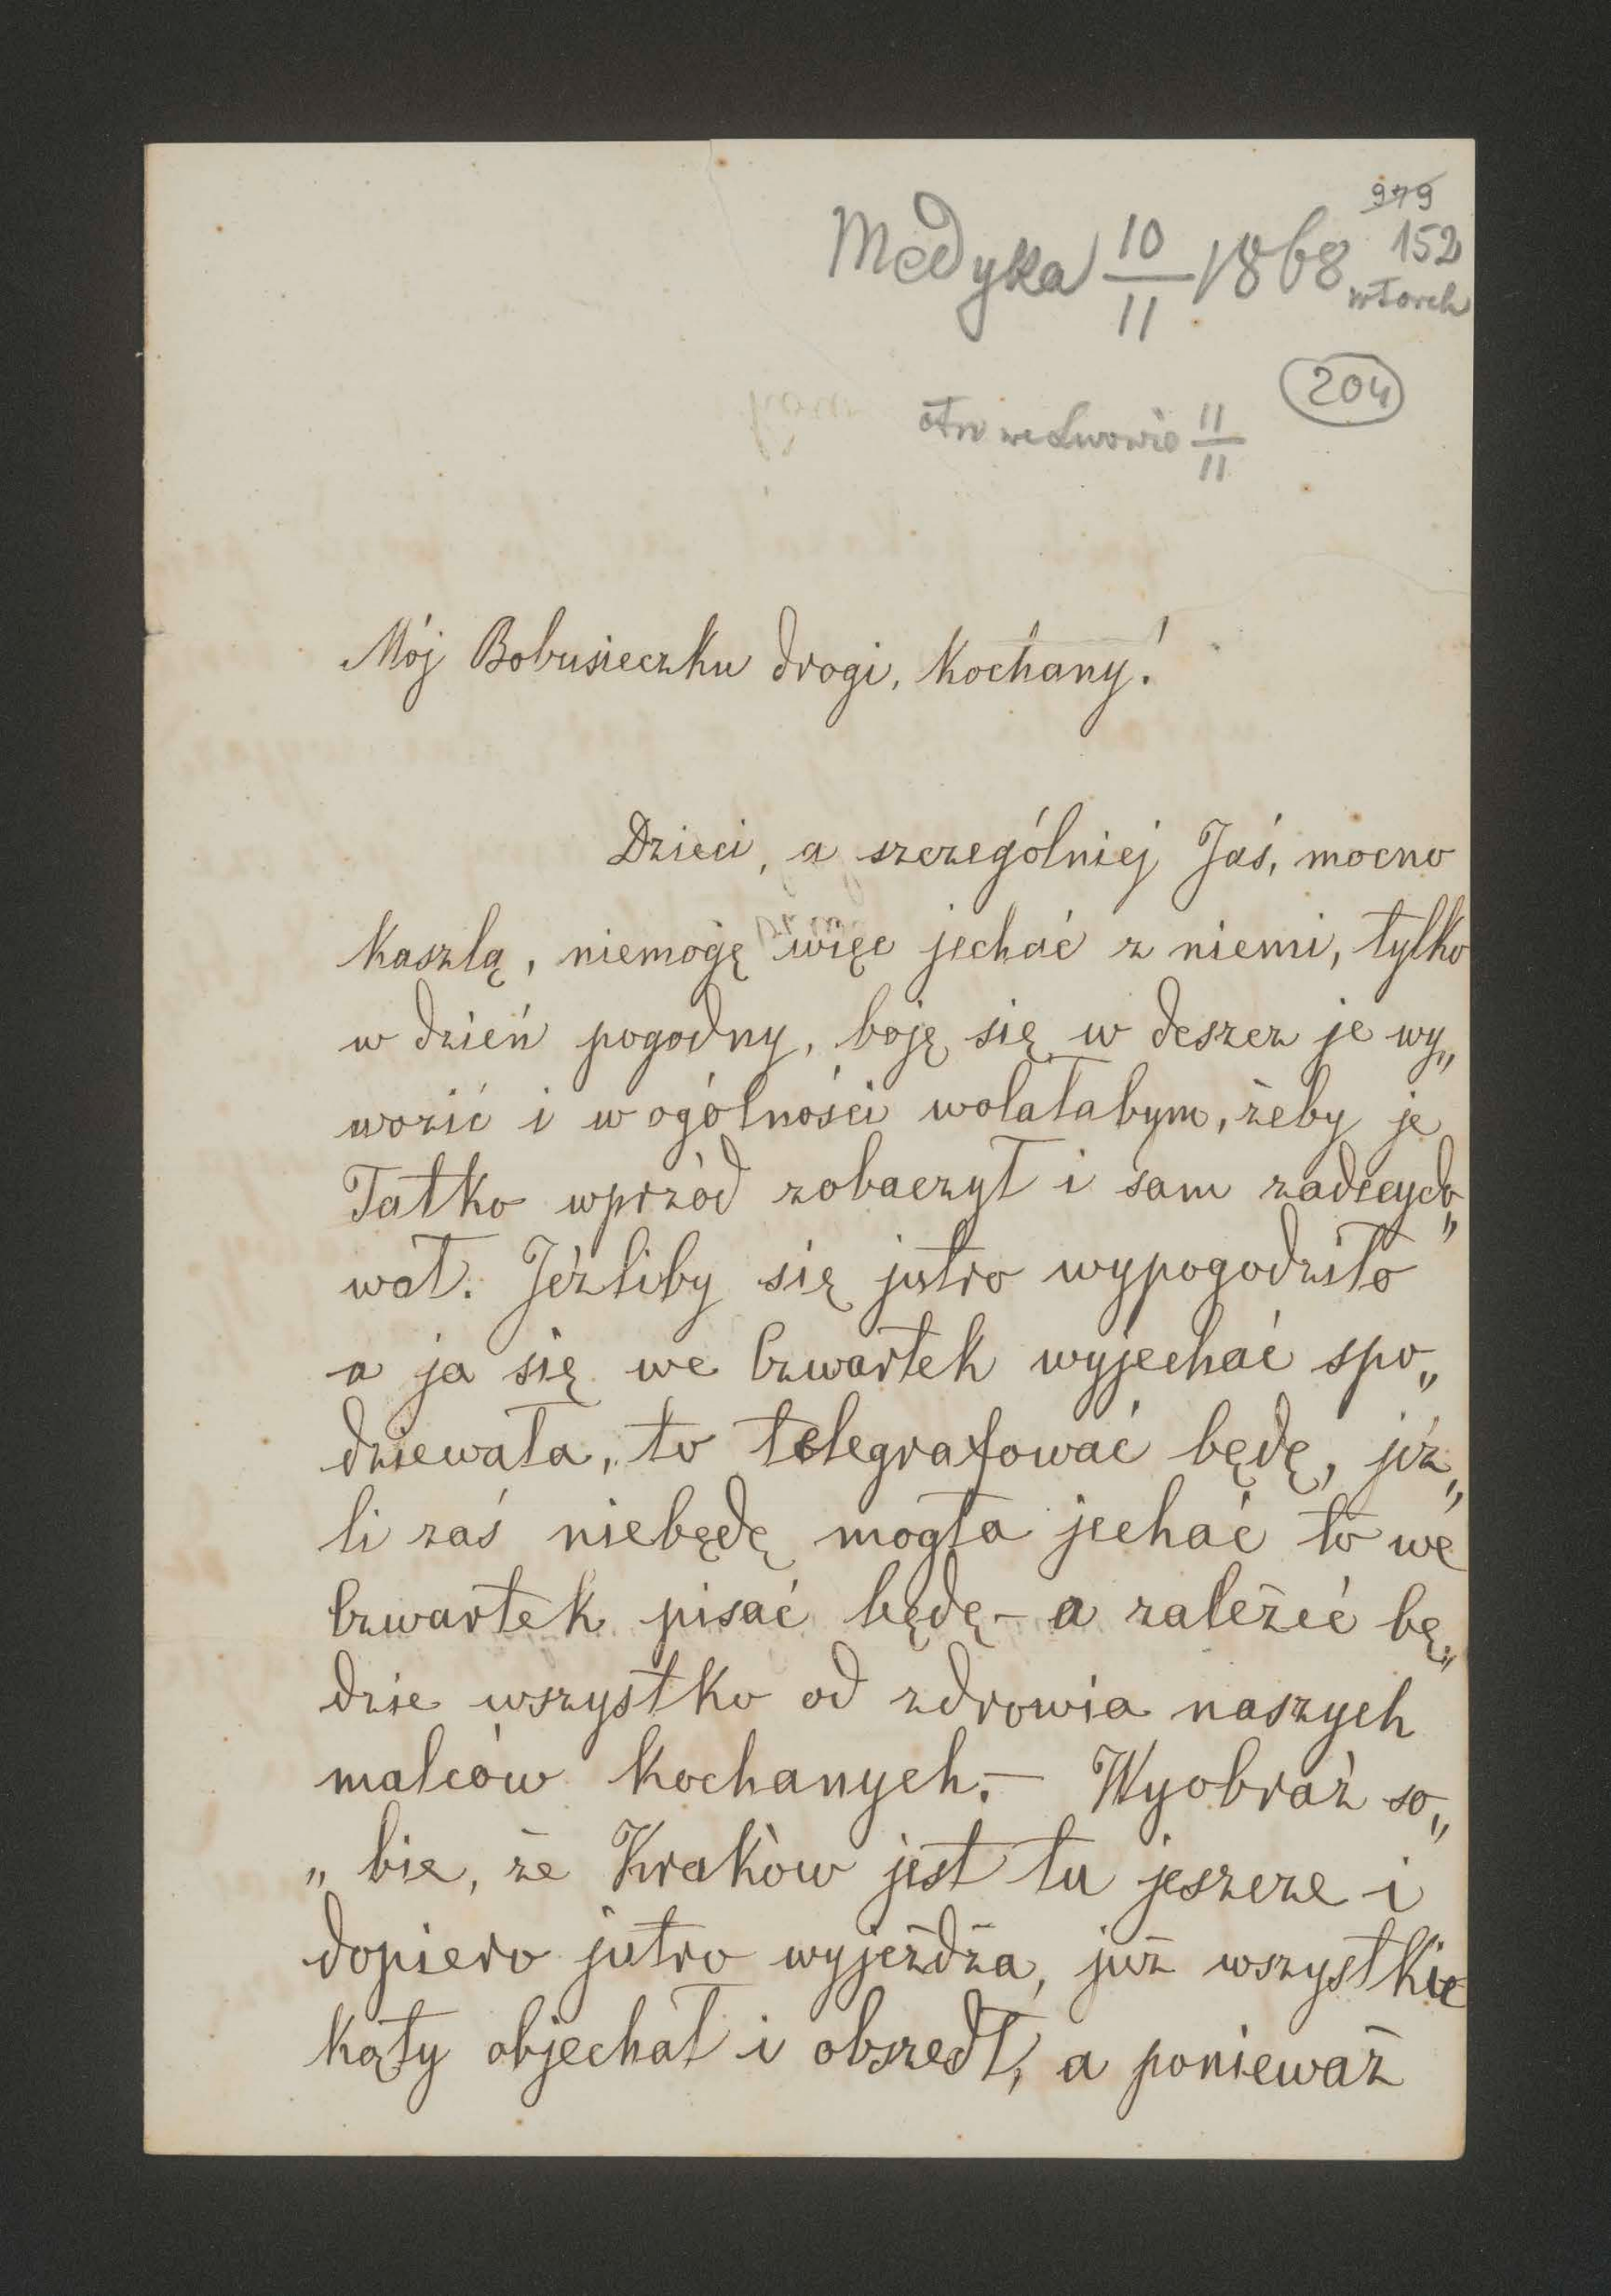 979
Medyka 10/11 1868 152
wtorek
204
otrz we Lwowie 11/11
Mój Bobusieczku drogi, kochany!
Dzieci, a szczególniej Jaś, mocno
kaszlą, niemogę więc jechać z niemi, tylko
w dzień pogodny, boję się w deszcz je wy„
wozić i w ogólności wolałabym, żeby je
Tatko wprzód zobaczył i sam zadecydo„
wał. Jeżliby się jutro wypogodziło
a ja się we Czwartek wyjechać spo„
dziewała, to telegrafować będę, jeż„
li zaś niebędę mogła jechać to we
Czwartek pisać będę – a zależeć bę„
dzie wszystko od zdrowia naszych
malców kochanych. – Wyobraź so„
„bie, że Kraków jest tu jeszcze i
dopiero jutro wyjeżdża, już wszystkie
kąty objechał i obszedł, a ponieważ